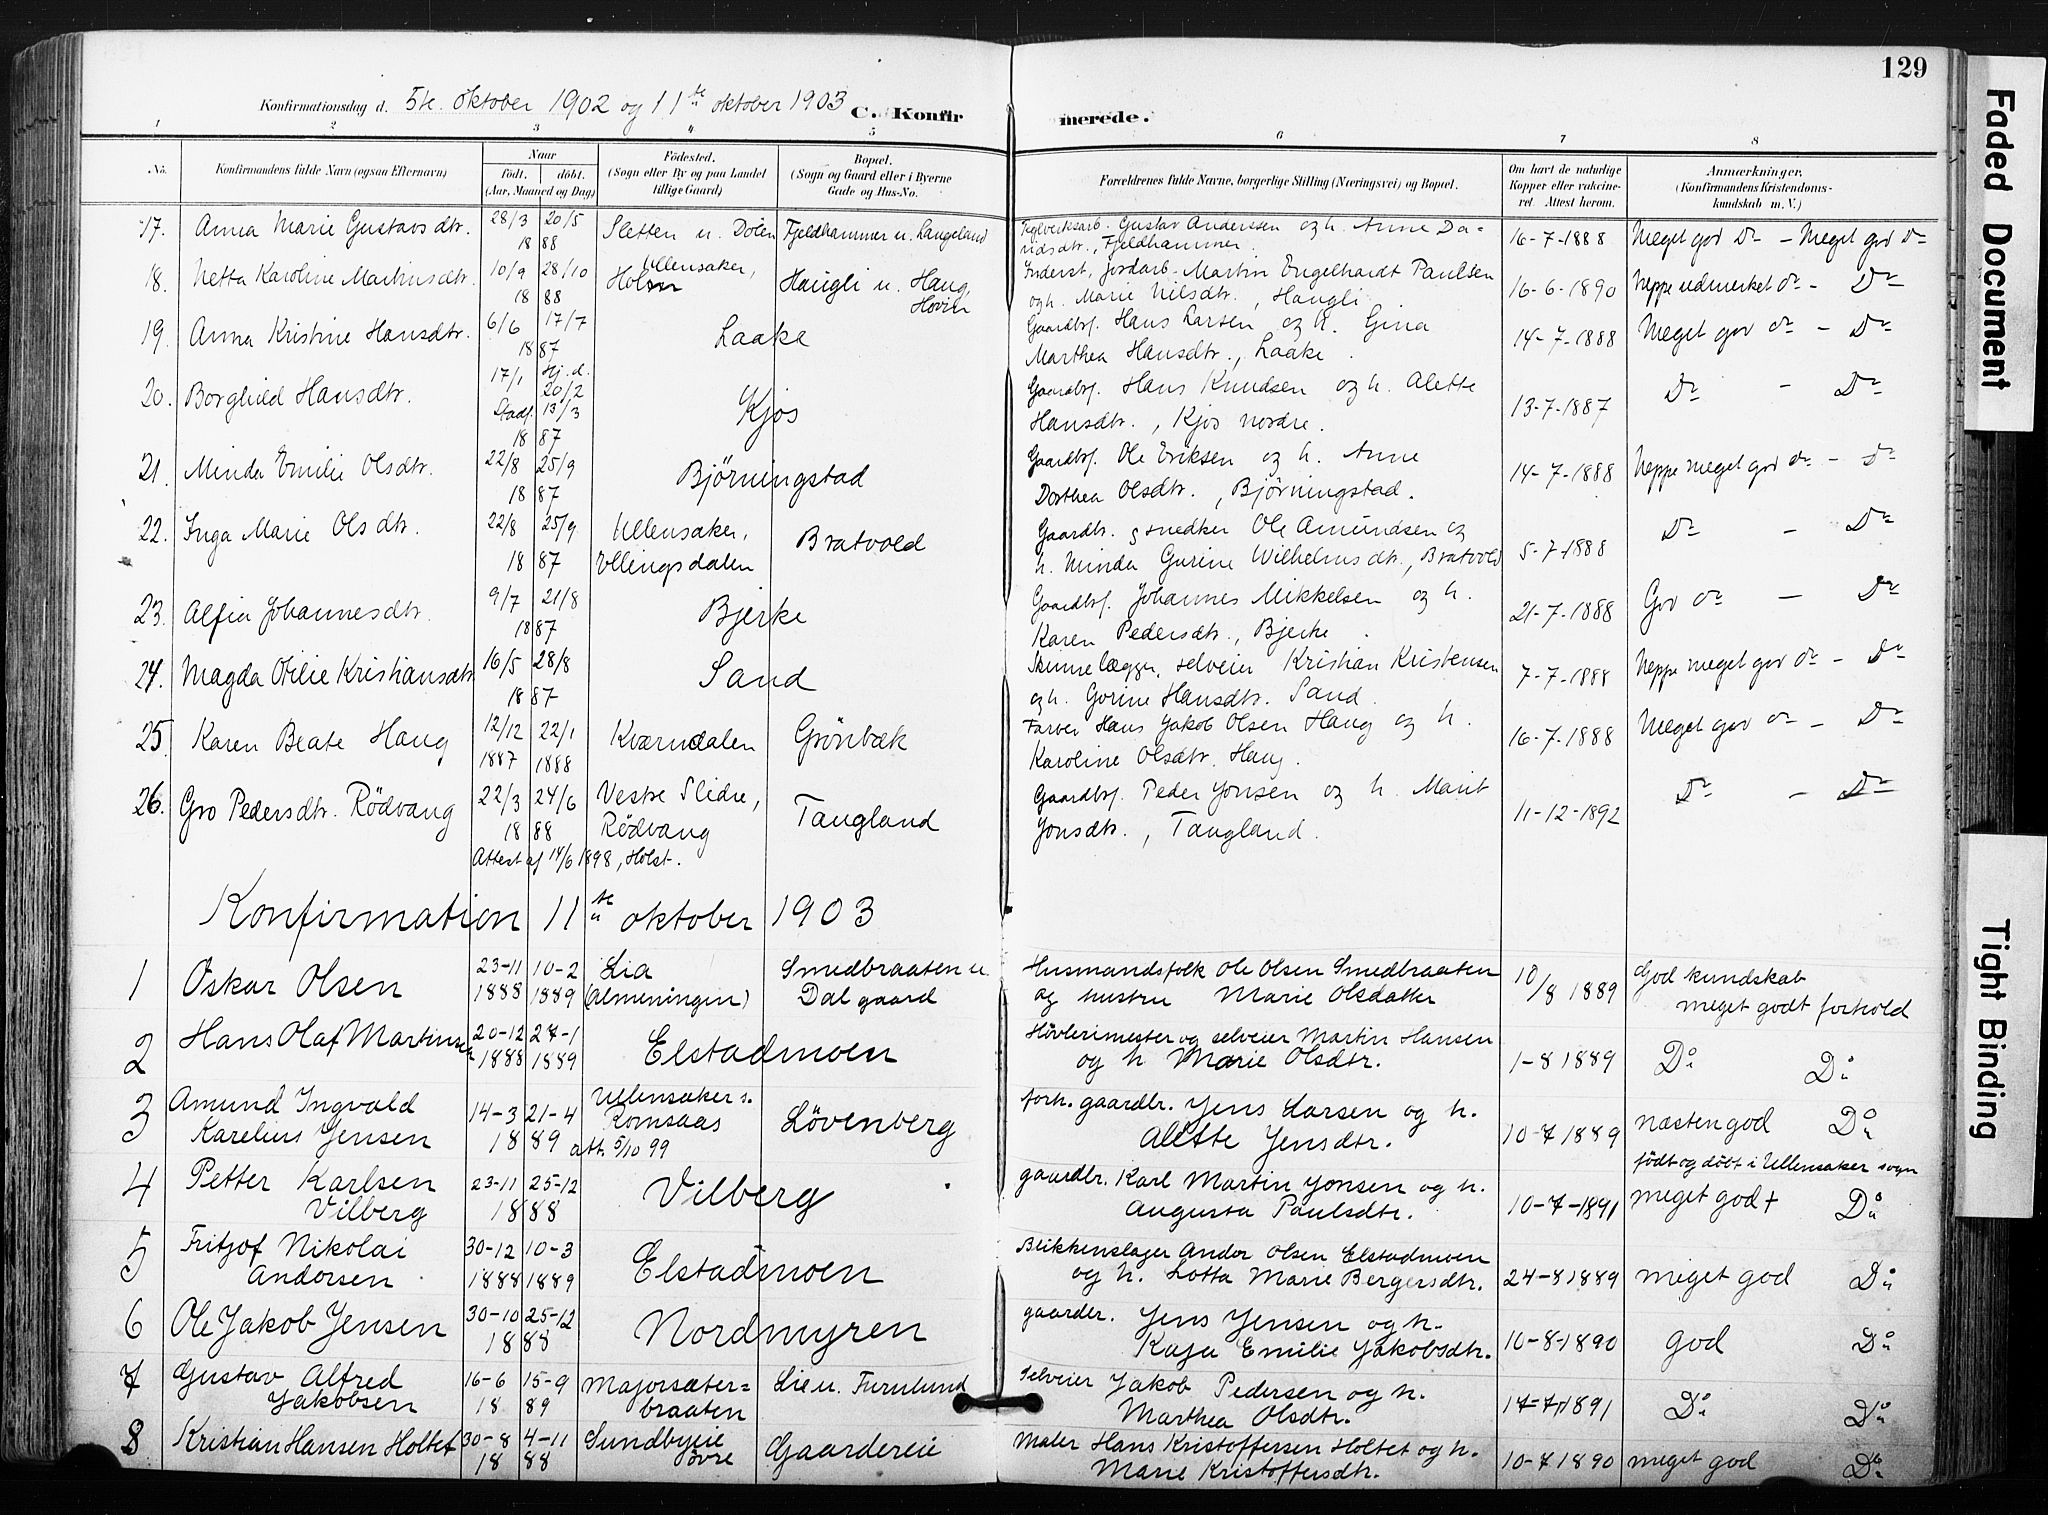 129
Konfirmationsdag d. 5te oktober 1902 og 11te oktober 1903 C. Konfirmerede.
1 2 3 4 5 6 7 8
No. Konfirmandens fulde Navn (ogsaa Efternavn) Naar født. døbt. (Aar, Maaned og Dag) Fødested. (Sogn eller By og paa Landet tillige Gaard) Bopæl. (Sogn og Gaard eller i Byerne Gade og Hus-No. Forældrenes fulde Navne, borgerlige Stilling (Næringsvei) og Bopæl. Om havt de naturlige Kopper eller vakcineret. Attest herom. Anmærkninger. (Konfirmandens Kristendomskundskab m. V.)
17. Anna Marie Gustavsdtr. 28/3 20/5 Sletten u. Dølen Fjeldhammer u. Laugeland Teglverksarb. Gustav Andersen og h. Anne Da-
18 88 vidsdtr., Fjeldhammer. 16-7-1888 Meget god Do - Meget god Do
18. Netta Karoline Martinsdtr. 10/9 28/10 Ullensaker, Haugli u. Haug, Inderst, jordarb. Martin Engelhardt Paulsen
18 88 Hovin og h. Marie Nilsdtr., Haugli 16-6-1890 Neppe udmerket do - Do
19. Anna Kristine Hansdtr. 6/6 17/7 Laake Gaardbr. Hans Larsen og h. Gina
18 87 Marthea Hansdtr., Laake. 14-7-1888 Meget god do - Do
20. Borghild Hansdtr. 17/1 Hj. d. 20/2 Kjos Gaardbr. Hans Knudsen og h. Alette
Stadf. 13/3 18 87 Hansdtr., Kjos nordre. 13-7-1887 Do - Do
21. Minda Emilie Olsdtr. 22/8 25/9 Bjørningstad Gaardbr. Ole Eriksen og h. Anne
18 87 Dorthea Olsdtr., Bjørningstad. 14-7-1888 Neppe meget god do - Do
22. Inga Marie Olsdtr. 22/8 25/9 Ullensaker, Bratvold Gaardbr. og snedker Ole Amundsen og
18 87 Ullingsdalen h. Minda Gurine Wilhelmsdtr., Bratvold 5-7-1888 Do - Do
23. Alfia Johannesdtr. 9/7 21/8 Bjerke Gaardbr. Johannes Mikkelsen og h.
18 87 Karen Pedersdtr., Bjerke. 21-7-1888 God do - Do
24. Magda Otilie Kristiansdtr. 16/5 28/8 Sand Skinnelægger, selveier Kristian Kristensen
18 87 og h. Gorine Hansdtr. Sand. 7-7-1888 Neppe meget god do - Do
25. Karen Beate Haug 12/12 22/1 Kværndalen Grönbæk Farver Hans Jakob Olsen Haug og h.
1887 1888 Karoline Olsdtr. Haug. 16-7-1888 Meget god do - Do
26. Gro Pedersdtr. Rödvang 22/3 24/6 Vestre Slidre, Taugland Gaardbr. Peder Jonsen og h. Marit
18 88 Rödvang Jonsdtr., Taugland. 11-12-1892 Do - Do
Attest af 14/6 1898, Holst.
Konfirmation 11te oktober 1903
1 Oskar Olsen 23-11 10-2 Lia Smedbraaten u. Husmandsfolk Ole Olsen Smedbraaten 10/8 1889 God kundskab
1888 1889 (Almeningen) Dalgaard og hustru Marie Olsdatter meget godt forhold
2 Hans Olaf Martinsen 20-12 27-1 Elstadmoen Høvlerimester og selveier Martin Hansen
1888 1889 og h. Marie Olsdtr. 1-8 1889 Do Do
3 Amund Ingvald 14-3 21-4 Ullensaker s. Lövenberg forh. gaardbr. Jens Larsen og h.
Karelius Jensen 18 89 Romsaas att. 5/10 99 Alette Jensdtr. 10-7 1889 næsten god Do
født og døbt i Ullensaker sogn
4 Petter Karlsen 23-11 25-12 Vilberg gaardbr. Karl Martin Jonsen og h.
Vilberg 18 88 Augusta Paulsdtr. 10-7-1891 meget god + Do
5 Fritjof Nikolai 30-12 10-3 Elstadmoen Blikkenslager Andor Olsen Elstadmoen
Andorsen 1888 1889 og h. Lotta Marie Bergersdtr. 24-8 1889 meget god Do
6 Ole Jakob Jensen 30-10 25-12 Nordmyren gaardbr. Jens Jensen og h.
18 88 Kaja Emilie Jakobsdtr. 10-8-1890 god Do
7 Gustav Alfred 16-6 15-9 Majorsæter= Lie u. Furulund Selveier Jakob Pedersen og h.
Jakobsen 18 89 braaten Marthea Olsdtr. 17-7-1891 Do Do
8 Kristian Hansen Holtet 30-8 4-11 Sundbyeie Gaardereie Maler Hans Kristoffersen Holtet og h.
18 88 övre Marie Kristoffersdtr. 10-7 1890 meget god Do
Faded Document
Tight Binding